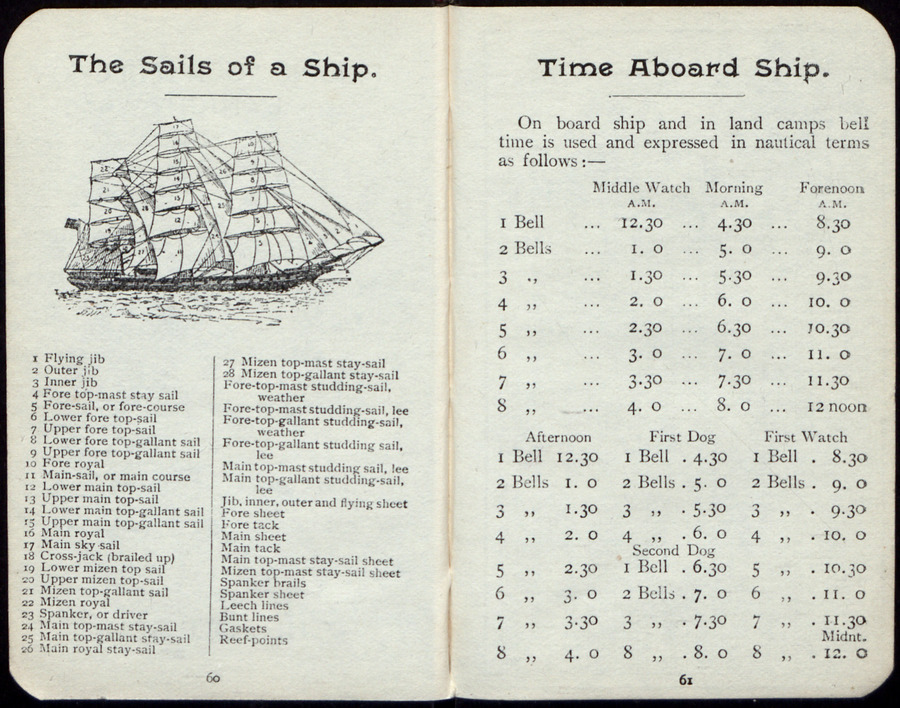 The Sails of a Ship.
1 Flying jib
2 Outer jib
3 Inner jib
4 Fore top-mast stay sail
5 Fore-sail, or fore-course
6 Lower fore top-sail
7 Upper fore top-sail
8 Lower fore top-gallant sail
9 Upper fore top-gallant sail
10 Fore royal
11 Main-sail, or main course
12 Lower main top-sail
13 Upper main top-sail
14 Lower main top-gallant sail
15 Upper main top-gallant sail
16 Main royal
17 Main sky-sail
18 Cross-jack (brailed up)
19 Lower mizen top sail
20 Upper mizen top-sail
21 Mizen top-gallant sail
22 Mizen royal
23 Spanker, or driver
24 Main top-mast stay-sail
25 Main top-gallant stay-sail
26 Main royal stay-sail
27 Mizen top-mast stay-sail
28 Mizen top-gallant stay-sail
Fore-top-mast studding-sail,
weather
Fore-top-mast studding-sail, lee
Fore-top-gallant studding-sail,
weather
Fore-top-gallant studding sail,
lee
Main top-mast studding sail, lee
Main top-gallant studding-sail,
lee
Jib, inner, outer and flying sheet
Fore sheet
Fore tack
Main sheet
Main tack
Main top-mast stay-sail sheet
Mizen top-mast stay-sail sheet
Spanker brails
Spanker sheet
Leech lines
Bunt lines
Gaskets
Reef-points
60
Time Aboard Ship.
On board ship and in land camps bell
time is used and expressed in nautical terms
as follows :—
Middle Watch Morning Forenoon
A.M. A.M. A.M.
1 Bell ... 12.30 ... 4.30 ... 8.30
2 Bells ... 1. 0 ... 5. 0 ... 9. 0
3 ,, ... 1.30 ... 5.30 ... 9.30
4 ,, ... 2. 0 ... 6. 0 ... 10. 0
5 ,, ... 2.30 ... 6.30 ... 10.30
6 ,, ... 3. 0 ... 7. 0 ... 11. 0
7 ,, ... 3.30 ... 7.30 ... 11.30
8 ,, ... 4. 0 ... 8. 0 ... 12 noon
Afternoon First Dog First Watch
1 Bell 12.30 1 Bell . 4.30 1 Bell . 8.30
2 Bells 1. 0 2 Bells . 5. 0 2 Bells . 9. 0
3 ,, 1.30 3 ,, . 5.30 3 ,, . 9.30
4 ,, 2. 0 4 ,, . 6. 0 4 ,, . 10. 0
Second Dog
5 ,, 2.30 1 Bell . 6.30 5 ,, . 10.30
6 ,, 3. 0 2 Bells . 7. 0 6 ,, . 11. 0
7 ,, 3.30 3 ,, . 7.30 7 ,, . 11.30
Midnt.
8 ,, 4. 0 8 ,, . 8. 0 8 ,, . 12. 0
61